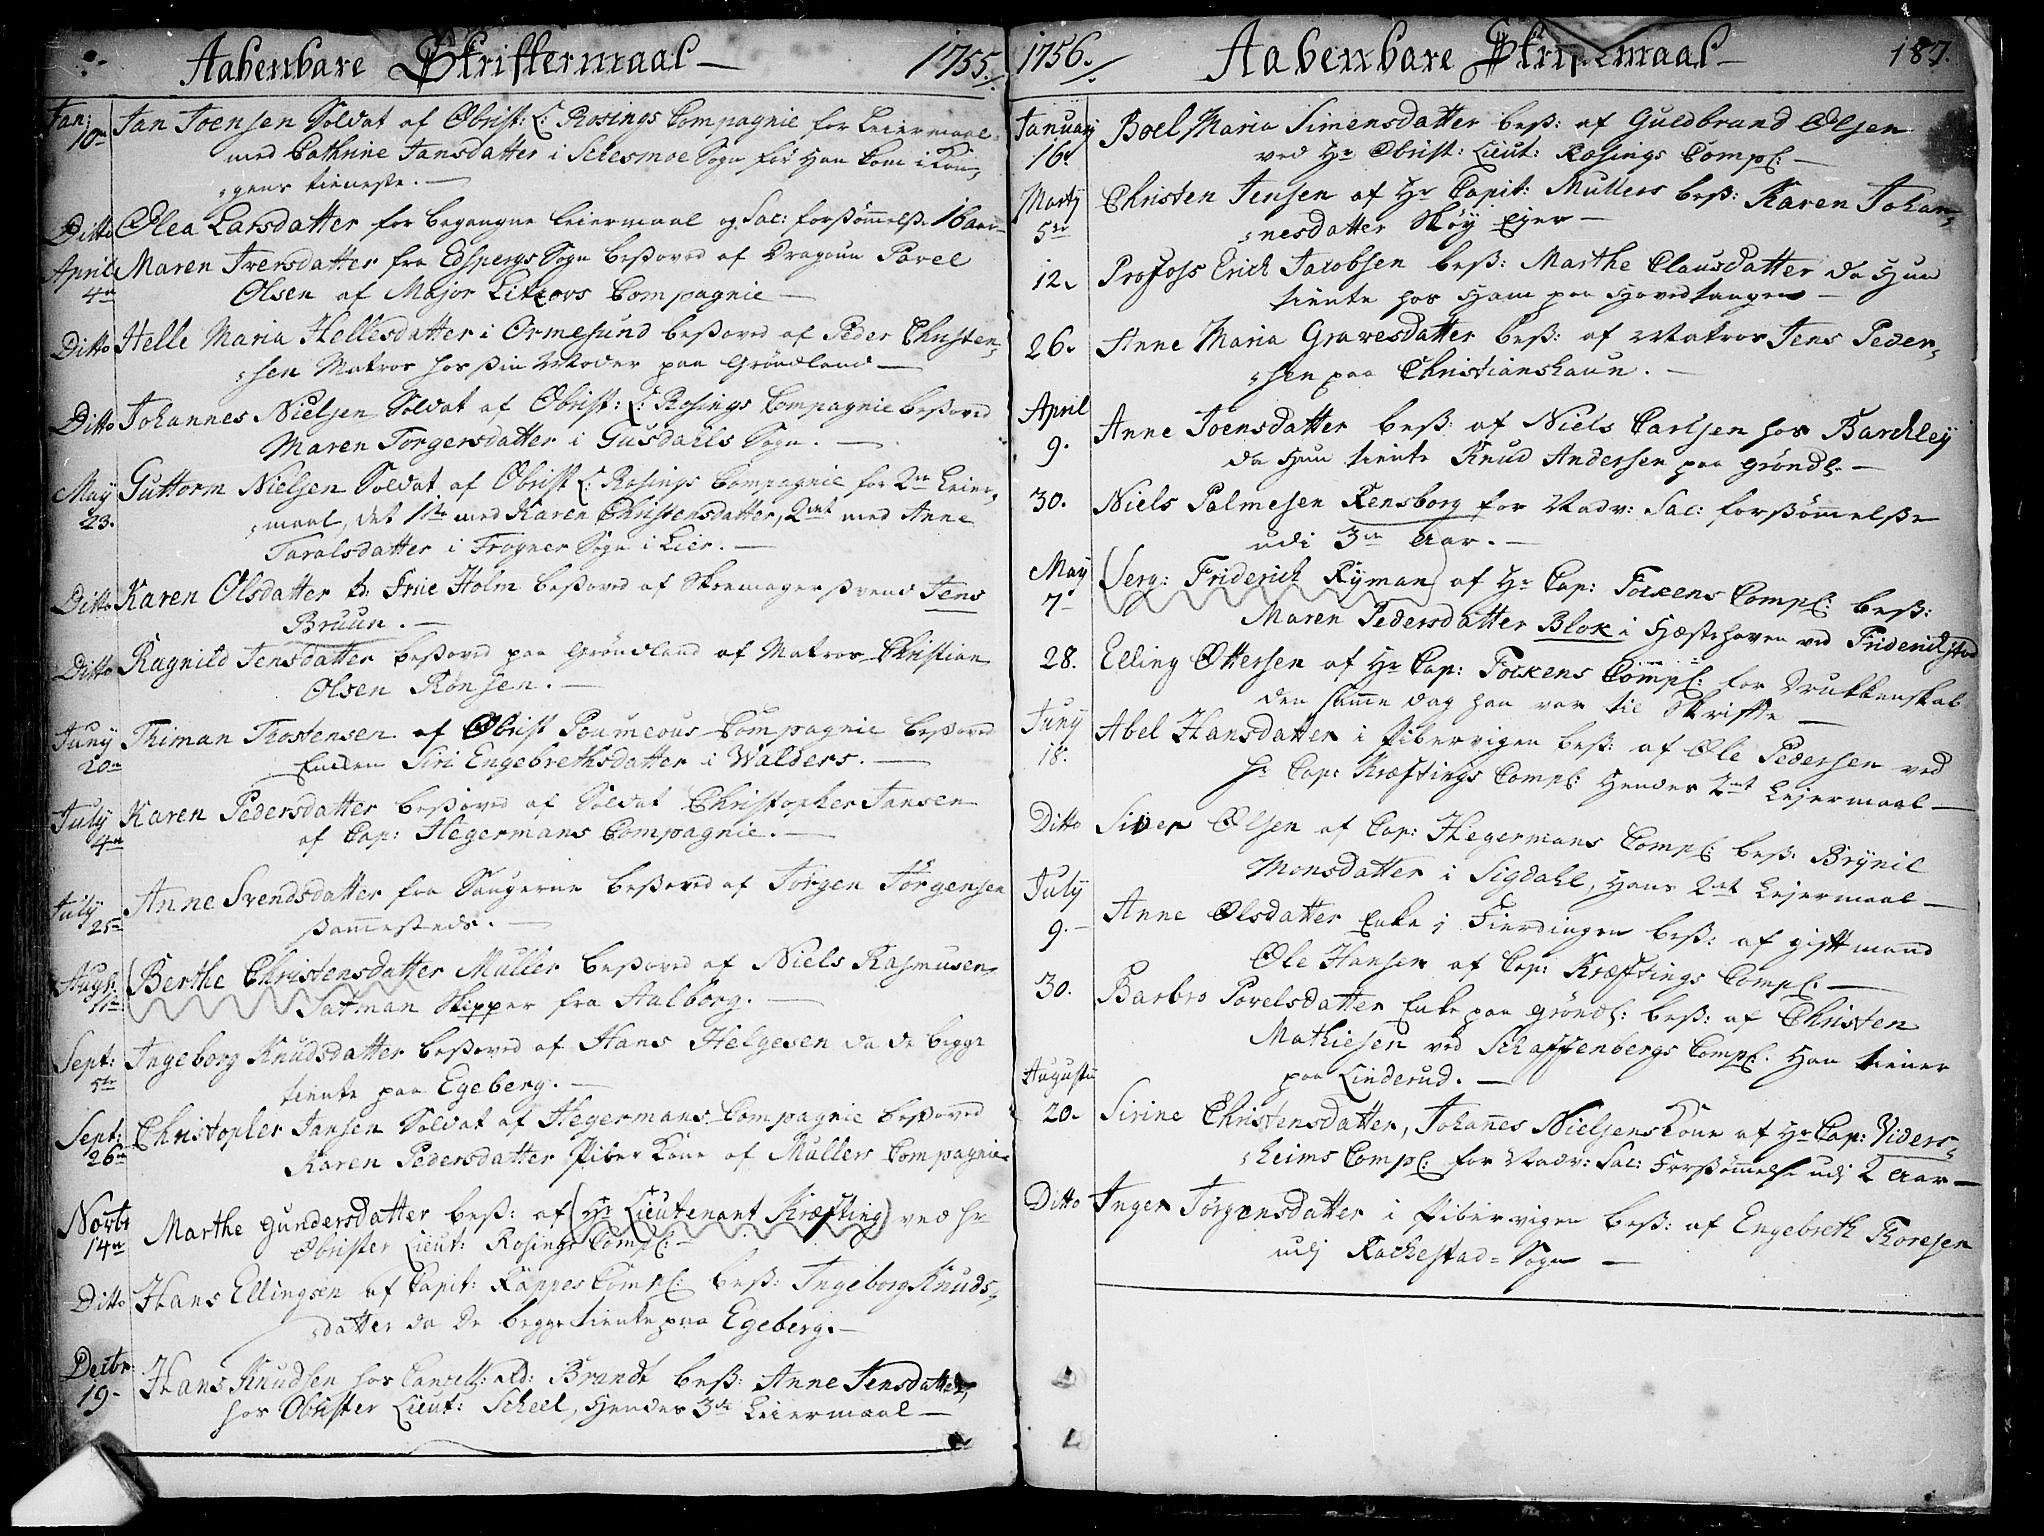 Aabenbare Skriftermaal — 1755.
Jan: Jan Joensen Soldat af Obrist: L: Rosings Compagnie for Leiermaal
10de med Cathrine Jansdatter i Schesmoe Sogn før han kom i Kon=
=gens tieneste. —
Ditto Olea Larsdatter for begangne Leiermaal og Sac: forsømmelse 16 aar —
April Maren Iversdatter fra Edsbergs Sogn besøved af Dragoun Povel
4de Olsen af Major Litzovs Compagnie —
Ditto Helle Maria Hellesdatter i Ormesund besoved af Peder Christen=
=sen Matros hos sin Moder paa Grønland —
Ditto Johannes Nielsen Soldat af Obrist: L: Rosings Compagnie besoved
Maren Torgersdatter i Gusdahls Sogn. —
May Guttorm Nielsen Soldat af Obrist L: Rosings Compagnie for 2de Leier=
23. =maal, det 1ste med Karen Christensdatter, 2det med Anne
Taralsdatter i Frogner Sogn i Lier. —
Ditto Karen Olsdatter h. Frue Holm besoved af Skoemagersvend Jens
Bruun. —
Ditto Ragnild Jensdatter besoved paa Grønland af Matros Christian
Olsen Rønsen. —
Juny Thiman Thostensen af Obrist Poumeous Compagnie besoved
20de Enken Siri Engebrethsdatter i Walders. —
July Karen Pedersdatter besoved af Soldat Christopher Jansen
4de af Cap: Hegermans Compagnie. —
July Anne Svendsdatter fra Saugerne besoved af Jørgen Jørgensen
25de sammesteds. —
Augs: Berthe Christensdatter Muller besoved af Niels Rasmusen
11te Satman Skipper fra Aalborg. —
Sept: Ingeborg Knudsdatter besoved af Hans Helgesen da de begge
5te tiente paa Egeberg. —
Sept: Christopler Jansen Soldat af Hegermans Compagnie besoved
26de Karen Pedersdatter Piber Kone af Muller Compagnie
Novbr Marthe Gundersdatter bes: af (Hr Lieutenant Kræfting) ved Hr
14de Obrister Lieut: Rosings Comp: —
Ditto Hans Ellingsen af Capit: Rappes Comp: bes: Ingeborg Knuds=
=datter da De begge tiente paa Egeberg. —
Decbr: Hans Knudsen hos Cancell: Brandt bes: Anne Jensdatter,
19. hos Obrister Lieut: Scheel, Hendes 3de Leiermaal —
1756. Aabenbare Skriftmaal — 187.
January Boel Maria Simensdatter bes: af Guldbrand Olsen
16. ved Hr Obrist: Lieut: Rosings Comp: —
Marty Christen Jensen af Hr Capit: Mullers bes: Karen Johan=
5te =nesdatter Skøy Ejer —
12. Profoss Erich Jacobsen bes: Marthe Clausdatter da Hun
tiente hos Ham paa Hovedtangen —
26. Anne Maria Gravesdatter bes: af Matros Jens Peder=
=sen paa Christianshaun. —
April
9. Anne Joensdatter bes: af Niels Carlsen hos Barchley
da Hun tiente Knud Andersen paa Grøndl. —
30. Niels Palmesen Rensborg for Nadv: Sac: forsømmelse
udi 3de Aar. —
May (Serg: Friderich Ryman) af Hr Cap: Fockens Comp: bes:
7 Maren Pedersdatter Blok i Hestehaven ved Friderichstad
28. Elling Ottersen af Hr Cap: Fockens Comp: for Drukkenskab
den samme dag han var til Skrifte —
Juny Abel Hansdatter i Pibervigen bes: af Ole Pedersen ved
18. Hr Cap: Kræftings Comp: Hendes 2det Lejermaal —
Ditto Siver Olsen af Cap: Hegermans Comp: bes: Brynil
Monsdatter i Sigdahl, Hans 2det Lejermaal —
July Anne Olsdatter Enke i Fierdingen bes: af gift mand
9. Ole Hansen af Cap: Kræftings Comp: —
30. Barbro Povelsdatter Enke paa Grøndl: bes: af Christen
Mathiesen ved Schaffenbergs Comp: Han tiener
paa Linderud. —
Augusti
20. Sirine Christensdatter, Johannes Nielsens Kone af Hr Cap: Viders=
=heims Comp: for Nadv: Sac: Forsømmelse udj 2 Aar —
Ditto Inger Jørgensdatter i Pibervigen bes: af Engebreth Thoresen
udj Rachestad = Sogn —